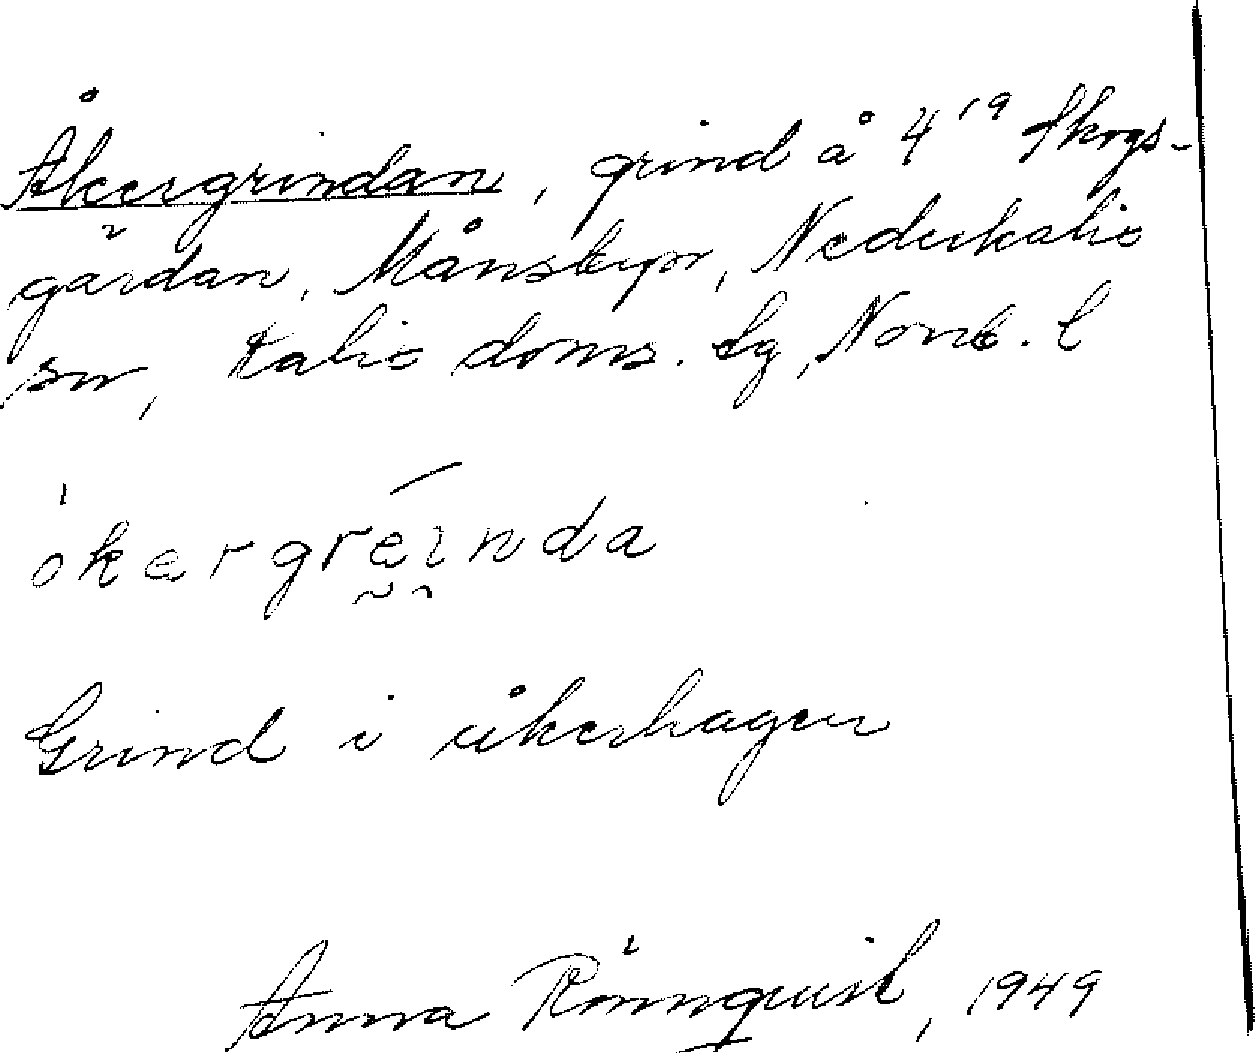 Åkergrindan, grind å 4¹⁹ Skogs-
gärdan, Månsbyn, Nederkalix
sn, Kalix doms. lg, Norrb. l
åkergreinda
Grind i åkerhagen
Anna Rönnquist, 1949